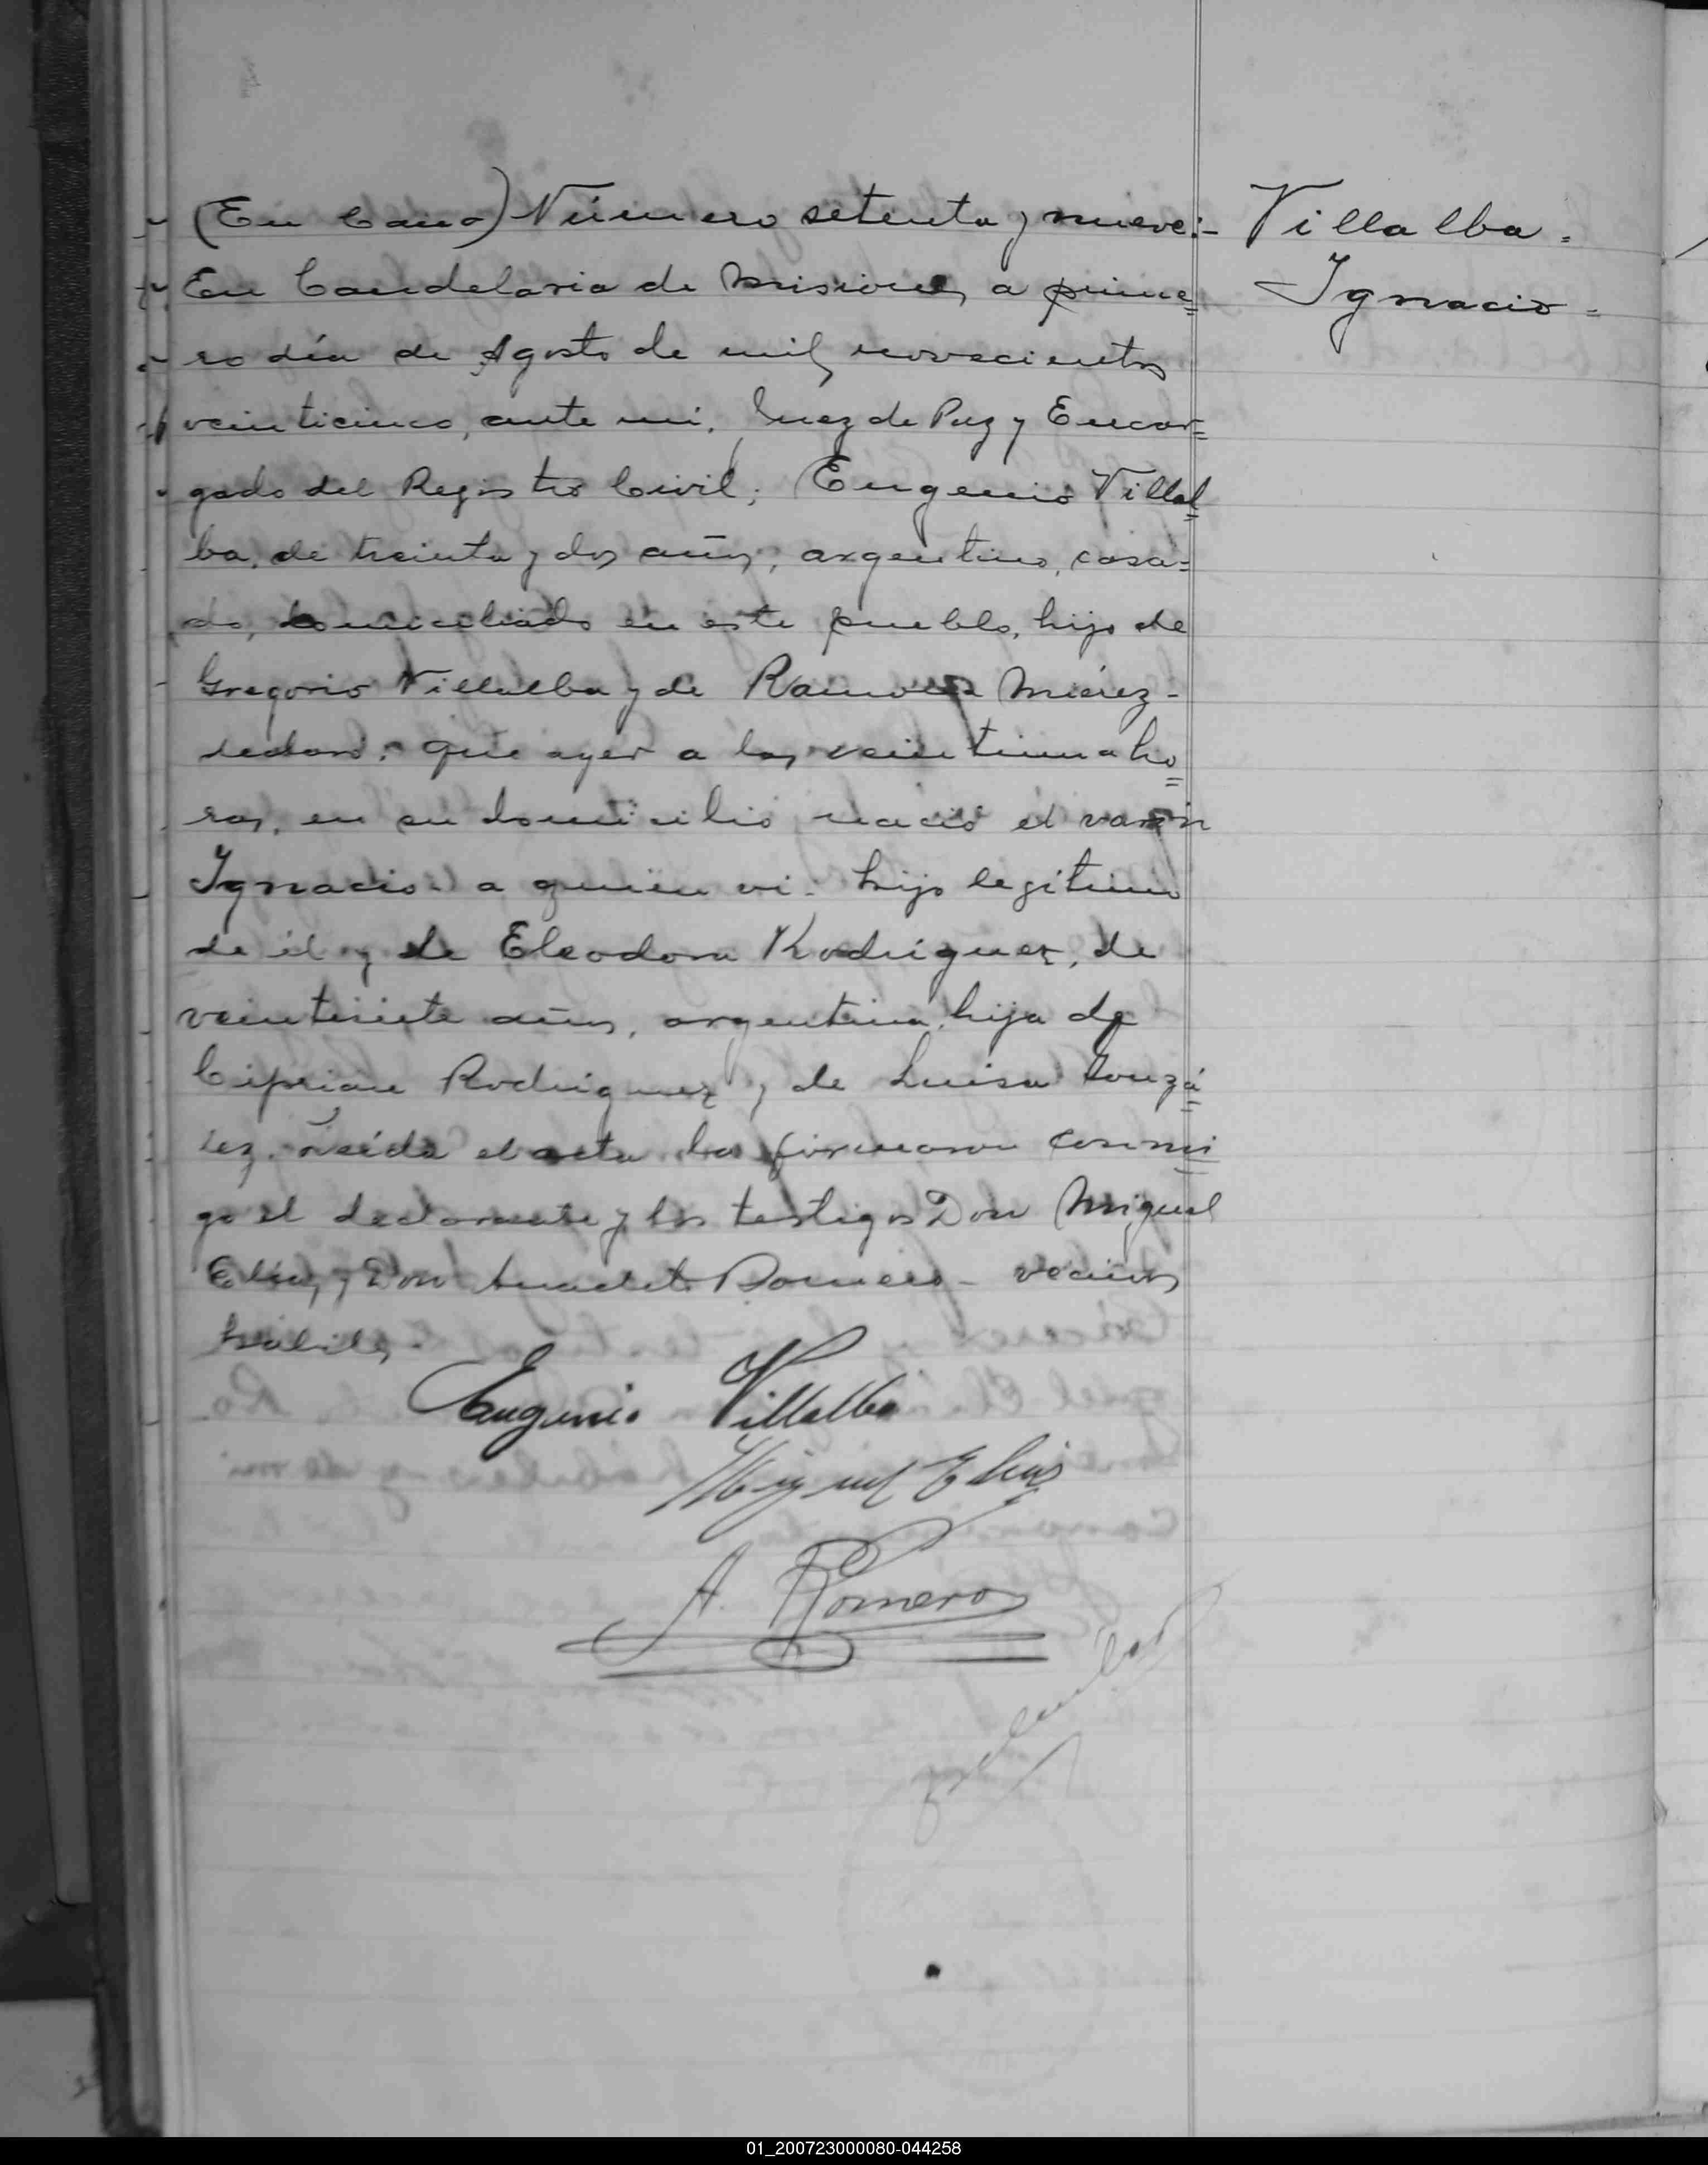 (En Cano) Número setenta y nueve:-
Villalba =
En Candelaria de Misiones, a prime=
Ignacio =
ro día de Agosto de mil novecientos
veinticinco, ante mi, Juez de Paz y Encar=
gado del Registro Civil; Eugenio Villal=
ba, de treinta y dos años, argentino, casa=
do, domiciliado en este pueblo, hijo de
Gregorio Villalba y de Ramona -
declaró: que ayer a las veintiuna ho=
ras, en su domicilio nació el varón
Ignacio. a quien vi. hijo legítimo
de él y de Eleodora Rodriguez, de
veintisiete años, argentina, hija de
Ciprian Rodriguez y de Luisa Gonzá=
lez. Leída el acta la firmaron conmi=
go el declarante y los testigos Don Miguel
Elías y Don Anacleto Romero - vecinos
habiles.
Eugenio Villalba
Miguel Elias
A. Romero
01_200723000080-044258